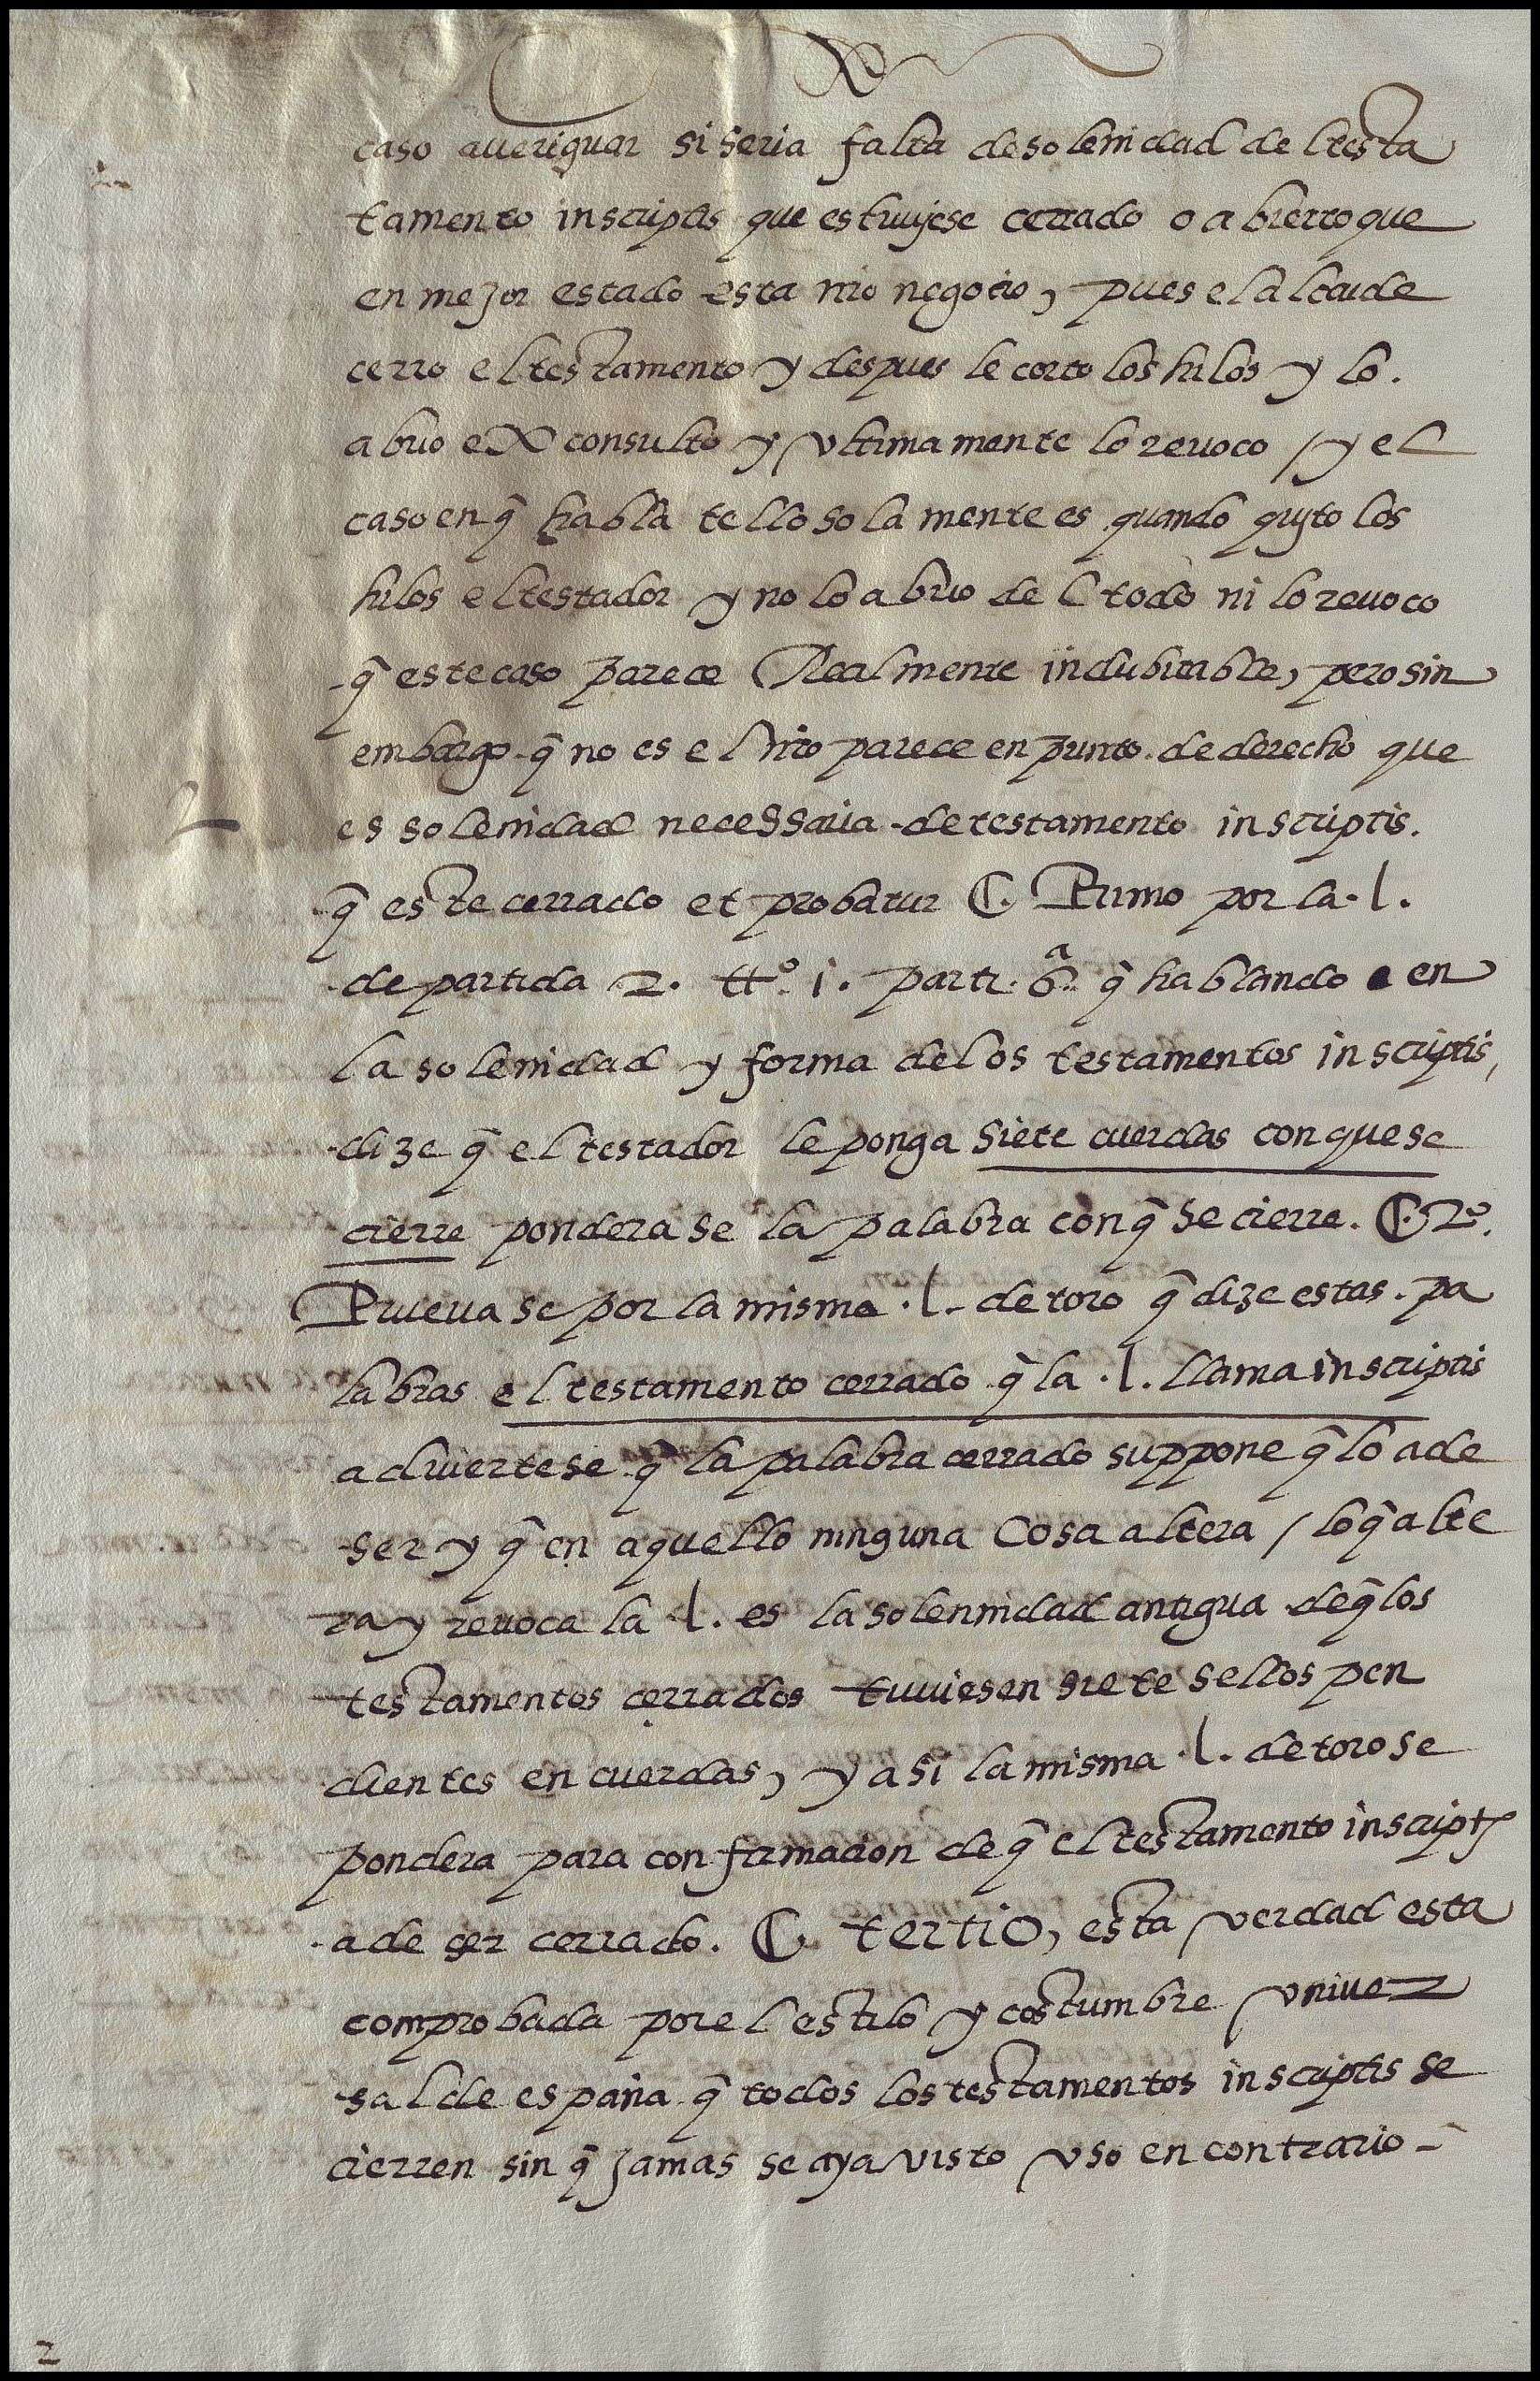 caso aueriguar si seria falta de solenidad del testa
tamento inscriptis que estuuiese cerrado o abierto que
en mejor estado esta nro negocio, pues el alcaide
cerro el testamento y despues le corto los hilos y lo.
abrio ex consulto y vltimamente lo reuoco / y el
caso en q̃ habla tello solamente es quando quyto los
hilos el testador y no lo abrio del todo ni lo reuoco
q̃ este caso parece Realmente indubitable, pero sin
embargo q̃ no es el nro parece en punto de derecho que
2
es solenidad necessaria de testamento inscriptis.
q̃ este cerrado et probatur C. Primo por la .l.
de partida 2. tto. 1. parti. 6.ª q̃ hablando en
la solenidad y forma de los testamentos inscriptis,
dize q̃ el testador le ponga siete cuerdas con que se
cierre ponderase la palabra con q̃ se cierre. C. 2º.
Prueuase por la misma .l. de toro q̃ dize estas pa
labras el testamento cerrado q̃ la .l. llama inscriptis
aduiertese q̃ la palabra cerrado suppone q̃ lo a de
ser y q̃ en aquello ninguna Cosa altera / lo q̃ alte
ra y reuoca la .l. es la solennidad antigua de q̃ los
testamentos cerrados tuuiesen siete sellos pen
dientes en cuerdas, y asi la misma .l. de toro se
pondera para confirmacion de q̃ el testamento inscriptis
a de ser cerrado. C tertio, esta verdad esta
comprobada por el estilo y costumbre vniuer
sal de españa q̃ todos los testamentos inscriptis se
cierren sin q̃ jamas se aya visto vso en contrario -
2